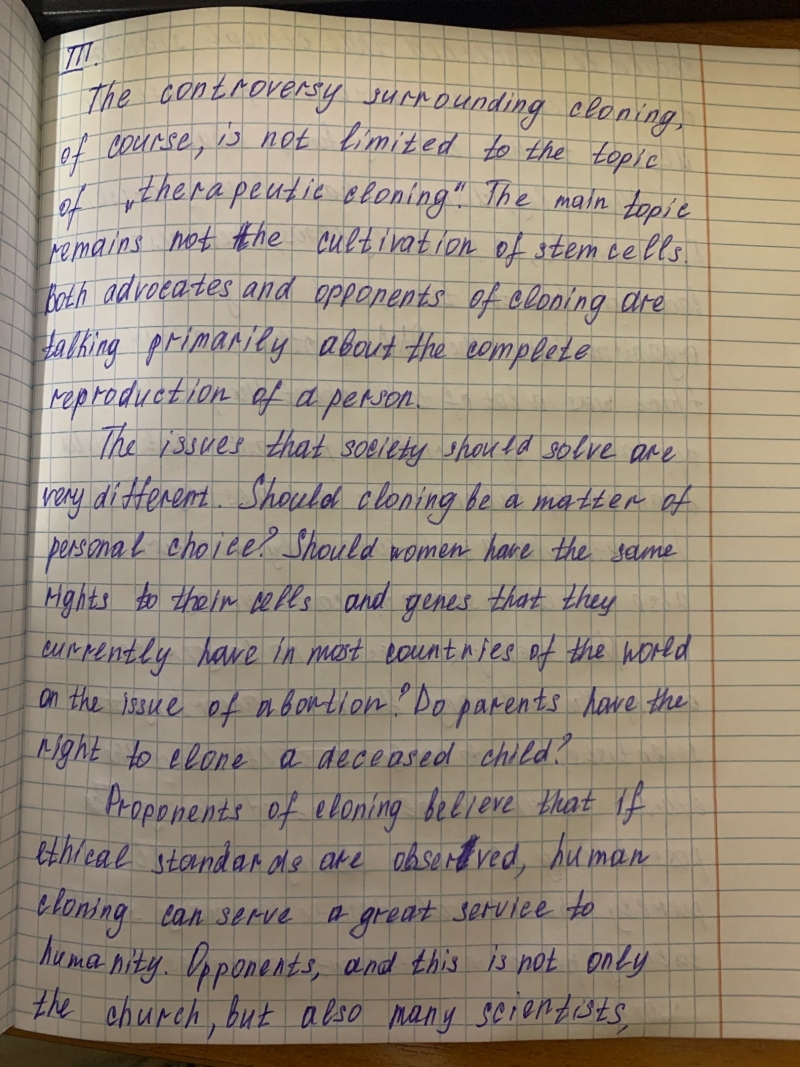 III.
The controversy surrounding cloning,
of course, is not limited to the topic
of „therapeutic cloning“. The main topic
remains not the cultivation of stem cells.
Both advocates and opponents of cloning are
talking primarily about the complete
reproduction of a person.
The issues that society should solve are
very different. Should cloning be a matter of
personal choice? Should women have the same
rights to their cells and genes that they
currently have in most countries of the world
on the issue of abortion? Do parents have the
right to clone a deceased child?
Proponents of cloning believe that if
ethical standards are observed, human
cloning can serve a great service to
humanity. Opponents, and this is not only
the church, but also many scientists,